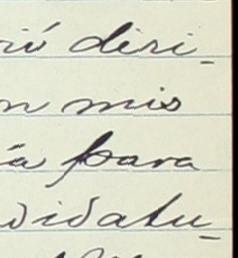 rió diri-
n mis
ía para
didatu-